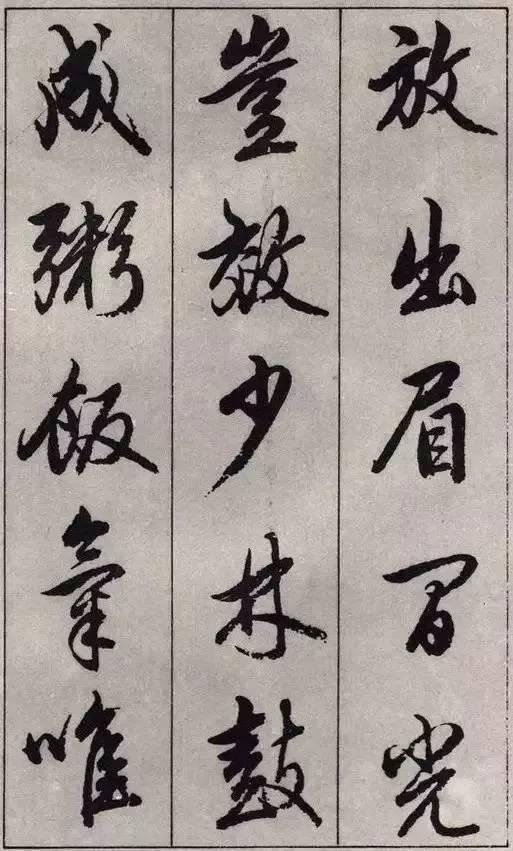 放出眉間光
豈教少林鼓
成粥飯氣唯